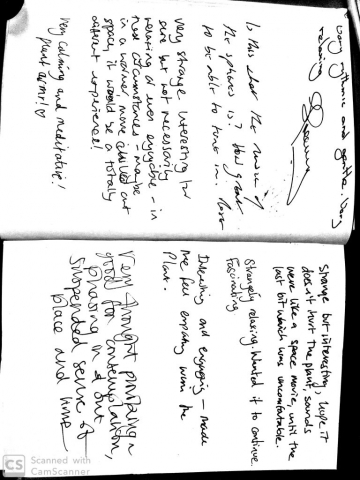 Very rythmic and gentle. Very
relaxing
Is this what the music of
the spheres is? How great
to be able to tune in.
Very strange. Interesting for
sure but not necessarily
relaxing or even enjoyable - in
these circumstances - maybe
in a warmer, more chilled out
space, it would be a totally
different experience!
Very calming and meditative!
plant army! ♡
Strange but interesting, hope it
doesn't hurt the plant, sounds
were like a space movie, until the
last bit which was uncomfortable.
Strangely relaxing. Wanted it to continue.
Fascinating
Interesting and engaging - made
me feel empathy with the
Plant.
Very thought provoking
good for contemplation,
phasing in & out
suspended sense of
place and time
CS Scanned with
CamScanner